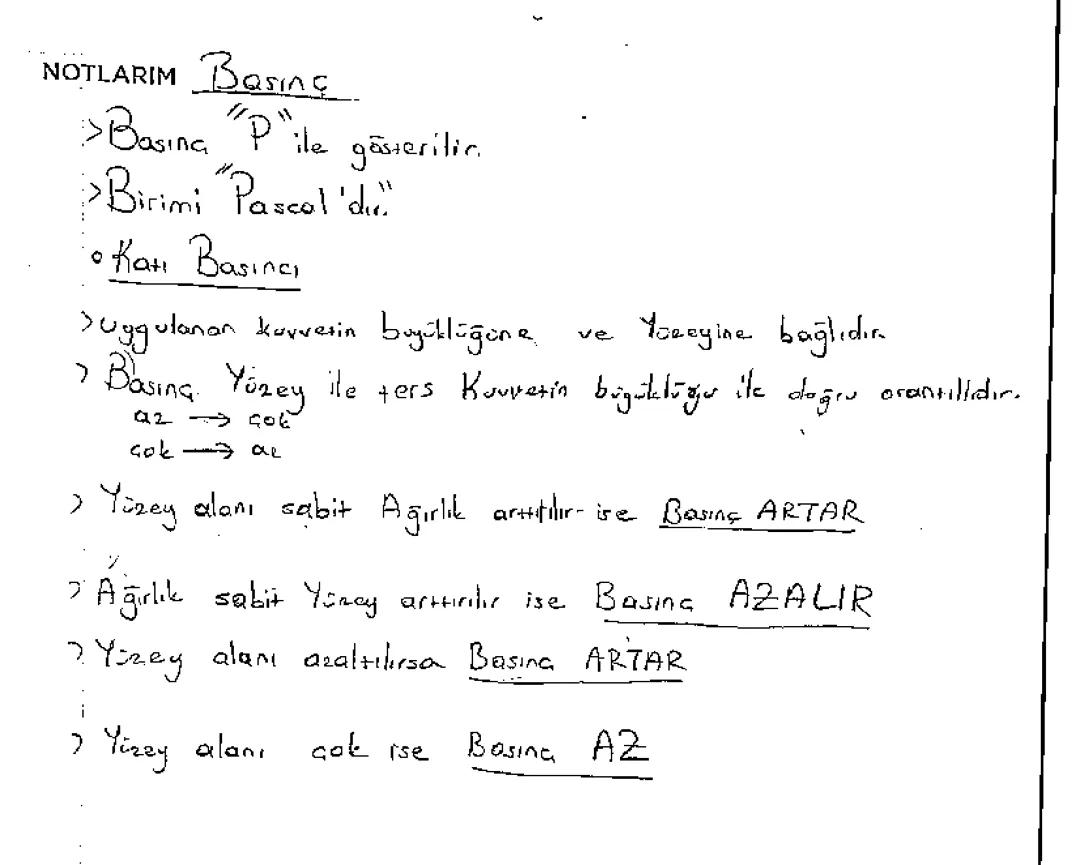 NOTLARIM Basınç
>Basınç "P" ile gösterilir.
>Birimi "Pascal'dır."
° Katı Basıncı
>Uygulanan kuvvetin büyüklüğüne ve Yüzeyine bağlıdır.
> Basınç Yüzey ile ters Kuvvetin büyüklüğü ile doğru orantıllıdır.
az → çok
çok → az
> Yüzey alanı sabit Ağırlık arttıılır ise Basınç ARTAR
> Ağırlık sabit Yüzey arttırılır ise Basınç AZALIR
> Yüzey alanı azaltılırsa Basınç ARTAR
> Yüzey alanı çok ise Basınç AZ